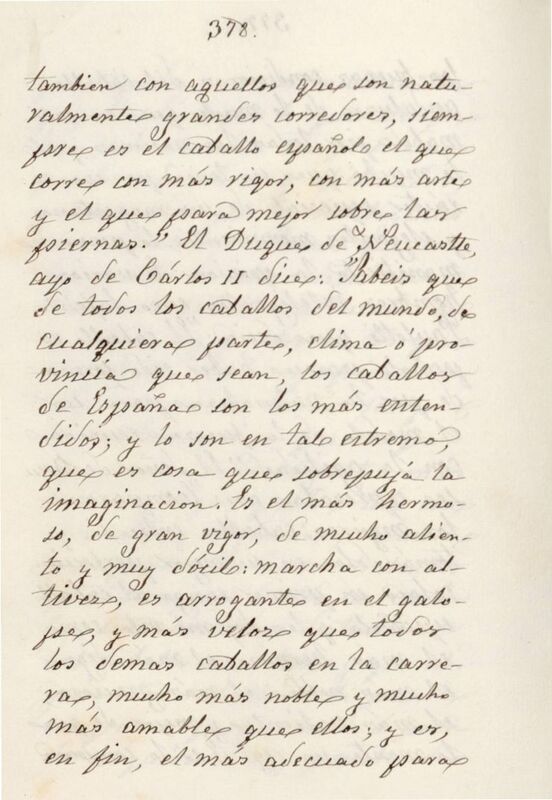 378.
tambien con aquellos que son natu-
ralmente grandes corredores, siem-
pre es el caballo español el que
corre con más vigor, con más arte
y el que para mejor sobre las
piernas." El Duque de Neucastle,
ayo de Cárlos II dice: "Sabeis que
de todos los caballos del mundo, de
cualquiera parte, clima ó pro-
vincia que sean, los caballos
de España son los más enten-
didos; y lo son en tal estremo,
que es cosa que sobrepujá la
imaginacion. Es el más hermo-
so, de gran vigor, de mucho alien-
to y muy dócil: marcha con al-
tivez, es arrogante en el galo-
pe, y más veloz que todos
los demas caballos en la carre-
ra, mucho más noble y mucho
más amable que ellos; y es,
en fin, el más adecuado para